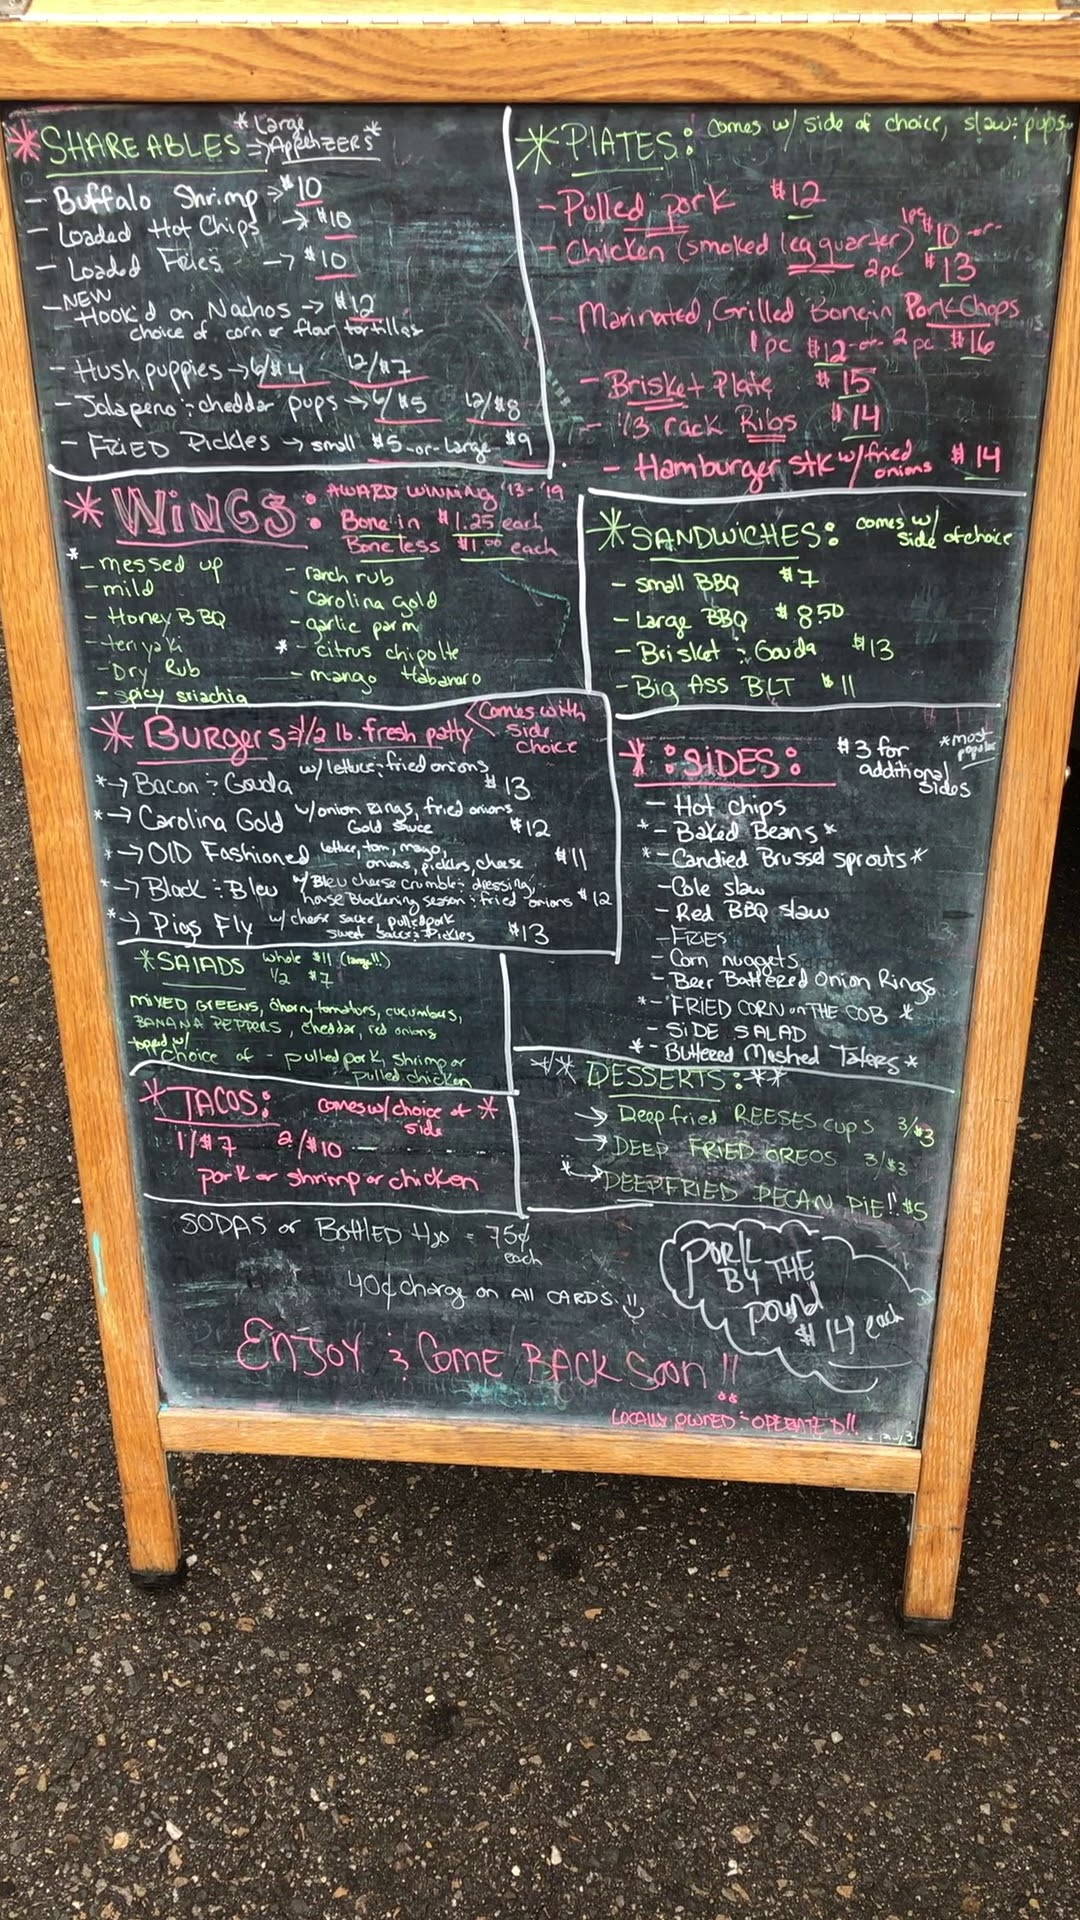 *SHAREABLES *Large
=> APPetizERS*
- Buffalo Shrimp -> $10
- Loaded Hot Chips -> $10
- Loaded Fries -> $10
- NEW
Hook'd on Nachos -> $12
choice of corn or flour tortillas
- Hushpuppies -> 6/$4 12/$7
- Jalapeno & cheddar pups -> 6/$5 12/$8
- FRIED Pickles -> small $5 -or- Large $9
*PLATES: comes w/ side of choice, slaw & pups
- Pulled pork $12
- Chicken (smoked leg quarter) 1pc $10 -or-
2pc $13
- Marinated, Grilled Bonein PorkChops
1pc $12 -or- 2pc $16
- Brisket Plate $15
- 1/3 rack Ribs $14
- Hamburger stk w/fried onions $14
*WiNGS: AWARD WINNING '13-'19
Bone in $1.25 each
Boneless $1.00 each
*- messed up
- mild
- Honey BBQ
- teriyaki
- Dry Rub
- spicy sriachia
- ranch rub
- carolina gold
- garlic parm
*- citrus chipolte
- mango Habanaro
*SANDWICHES: comes w/
side of choice
- small BBQ $7
- Large BBQ $8.50
- Brisket & Gouda $13
- Big Ass BLT $11
*BURGERS => 1/2 lb. fresh patty <Comes with
side
choice
*-> Bacon & Gouda w/ lettuce & fried onions $13
*-> Carolina Gold w/onion rings, fried onions
Gold Sauce $12
*-> OlD Fashioned lettuce, tom, mayo,
onions, pickles, cheese $11
*-> Black & Bleu w/ Bleu cheese crumble & dressing,
house blackening season & fried onions $12
*-> Pigs Fly w/ cheese sauce, pulled pork
sweet sauce & Pickles $13
* :SiDES: $3 for
additional
sides
*most
popular
- Hot chips
*- Baked Beans *
*- Candied Brussel sprouts *
- Cole slaw
- Red BBQ slaw
- FRIES
- Corn nuggets
- Beer Battered Onion Rings
*- FRIED CORN on THE COB *
- SiDE SALAD
*- Buttered Mashed Taters *
*SALADS whole $11 (large!!)
1/2 $7
MiXED GREENS, cherry tomatoes, cucumbers,
BANANA PEPPERS, cheddar, red onions
topped w/
choice of - pulled pork, shrimp or
pulled chicken
*TACOS: comes w/ choice of *
side
1/$7 2/$10
pork or shrimp or chicken
** DESSERTS: **
-> Deep fried REESES cups 3/$3
-> DEEP FRIED OREOS 3/$3
*-> DEEPFRIED PECAN PiE!! $5
SODAS or BottlED H2o = 75¢
each
40¢ charge on All CARDS!!
PORK
BY THE
pound
$14 each
ENJOY & COME BACK Soon!!
LOCALLY OWNED & OPERATED!!